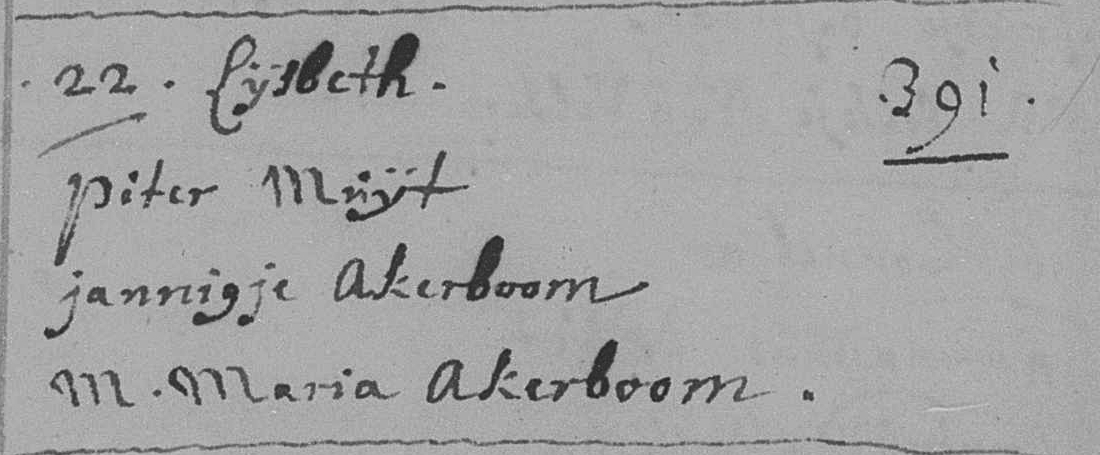 . 22 . Lijsbeth . .391 .
piter Muijt
jannigje Akerboom
M . Maria Akerboom .